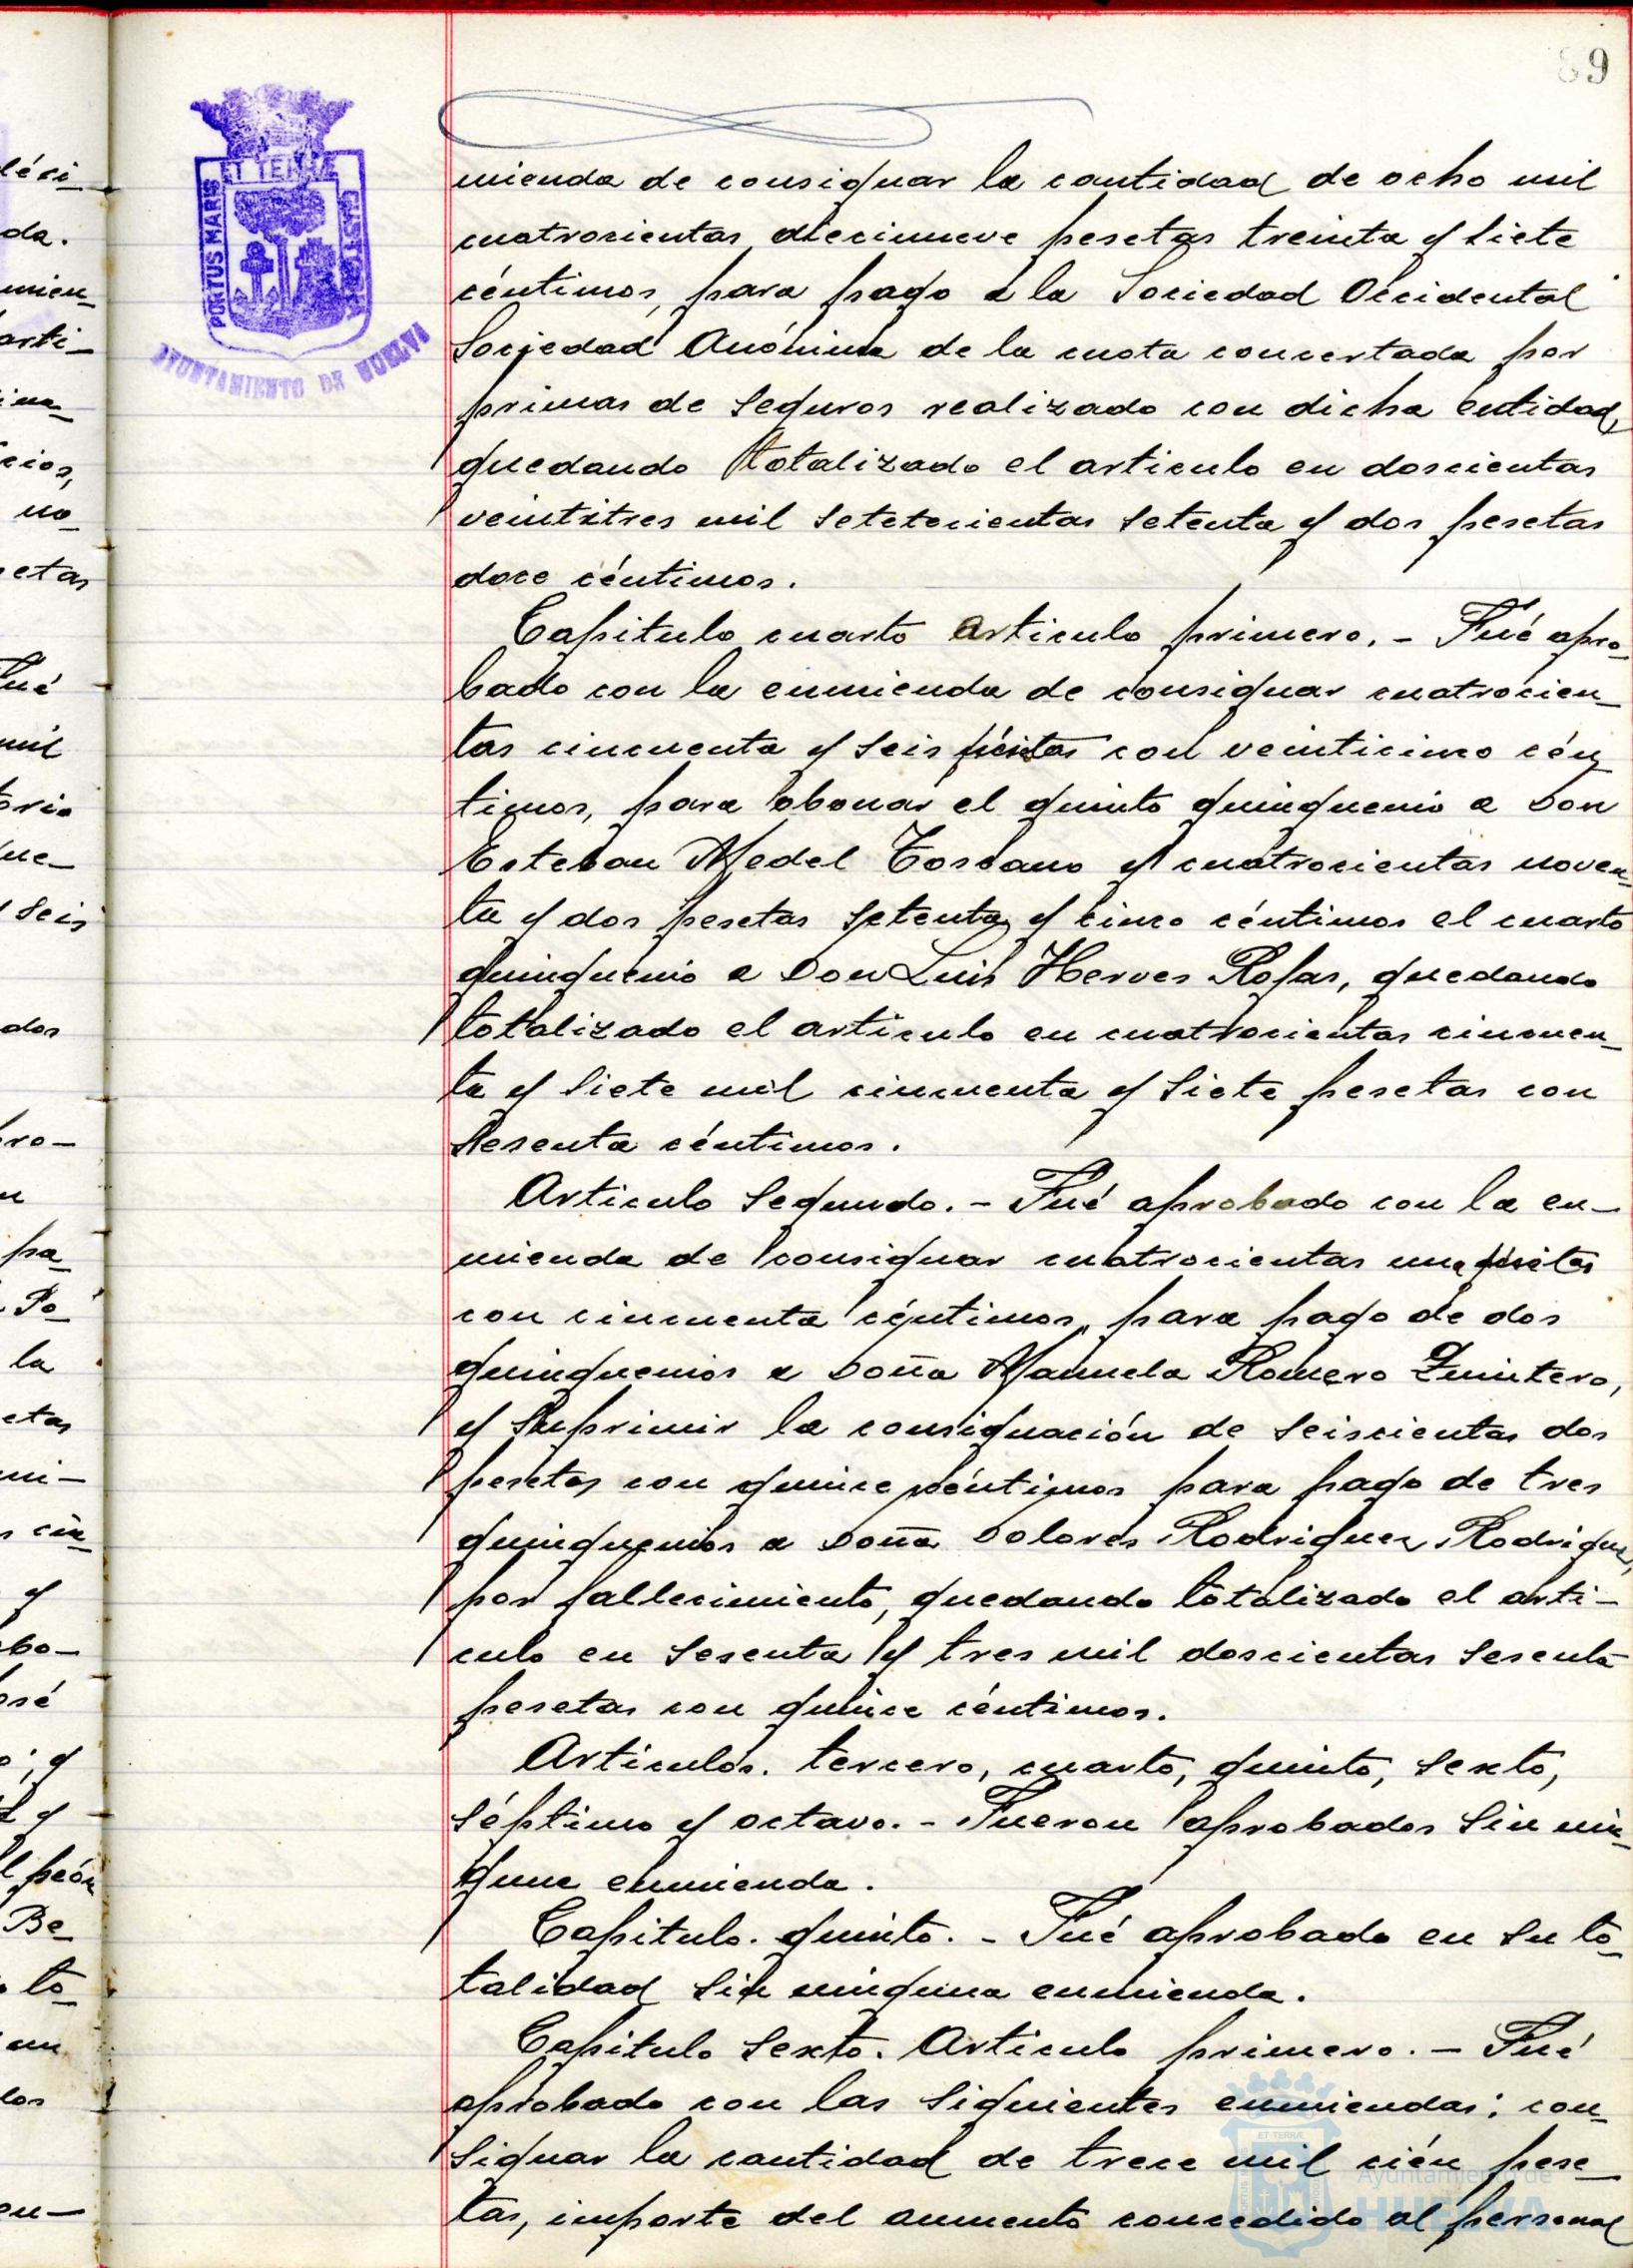 89
PORTUS MARIS
ET TERRÆ
CUSTODIA
AYUNTAMIENTO DE HUELVA
mienda de consignar la cantidad de ocho mil
cuatrocientas diecinueve pesetas treinta y siete
céntimos, para pago a la Sociedad Occidental
Sociedad Anónima de la cuota concertada por
primas de seguros realizado con dicha entidad,
quedando totalizado el articulo en doscientas
veintitres mil setetecientas setenta y dos pesetas
doce céntimos.
Capitulo cuarto articulo primero. - Fué apro_
bado con la enmienda de consignar cuatrocien_
tas cincuenta y seis pesetas con veinticinco cén_
timos, para abonar el quinto quinquenio a Don
Esteban Medel Toscano y cuatrocientas noven_
ta y dos pesetas setenta y cinco céntimos el cuarto
quinquenio a Don Luis Herves Rojas, quedando
totalizado el articulo en cuatrocientas cincuen_
ta y siete mil cincuenta y siete pesetas con
sesenta céntimos.
Articulo segundo. - Fué aprobado con la en-
mienda de consignar cuatrocientas una pesetas
con cincuenta céntimos, para pago de dos
quinquenios a Doña Manuela Romero Quintero,
y suprimir la consignación de seiscientas dos
pesetas con quince céntimos para pago de tres
quinquenios a Doña Dolores Rodriguez Rodriguez,
por fallecimiento, quedando totalizado el arti-
culo en sesenta y tres mil doscientas sesenta
pesetas con quince céntimos.
Articulos. tercero, cuarto, quinto, sexto,
séptimo y octavo. - Fueron aprobados sin nin_
guna enmienda.
Capitulo. quinto. - Fué aprobado en su to_
talidad sin ninguna enmienda.
Capitulo sexto. Articulo primero. - Fué
aprobado con las siguientes enmiendas: con_
signar la cantidad de trece mil cién pese_
tas, importe del aumento concedido al personal
Ayuntamiento de
HUELVA